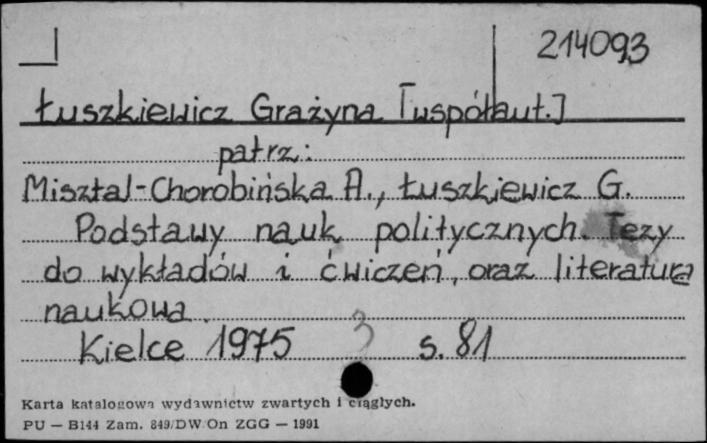 214093
Łuszkiewicz Grażyna [współaut.]
patrz:
Misztal-Chorobińska A., Łuszkiewicz G.
Podstawy nauk politycznych. Tezy
do wykładów i ćwiczeń, oraz literatura
naukowa.
Kielce 1975 3 s. 81
Karta katalogowa wydawnictw zwartych i ciągłych.
PU — B144 Zam. 849/DW/On ZGG — 1991